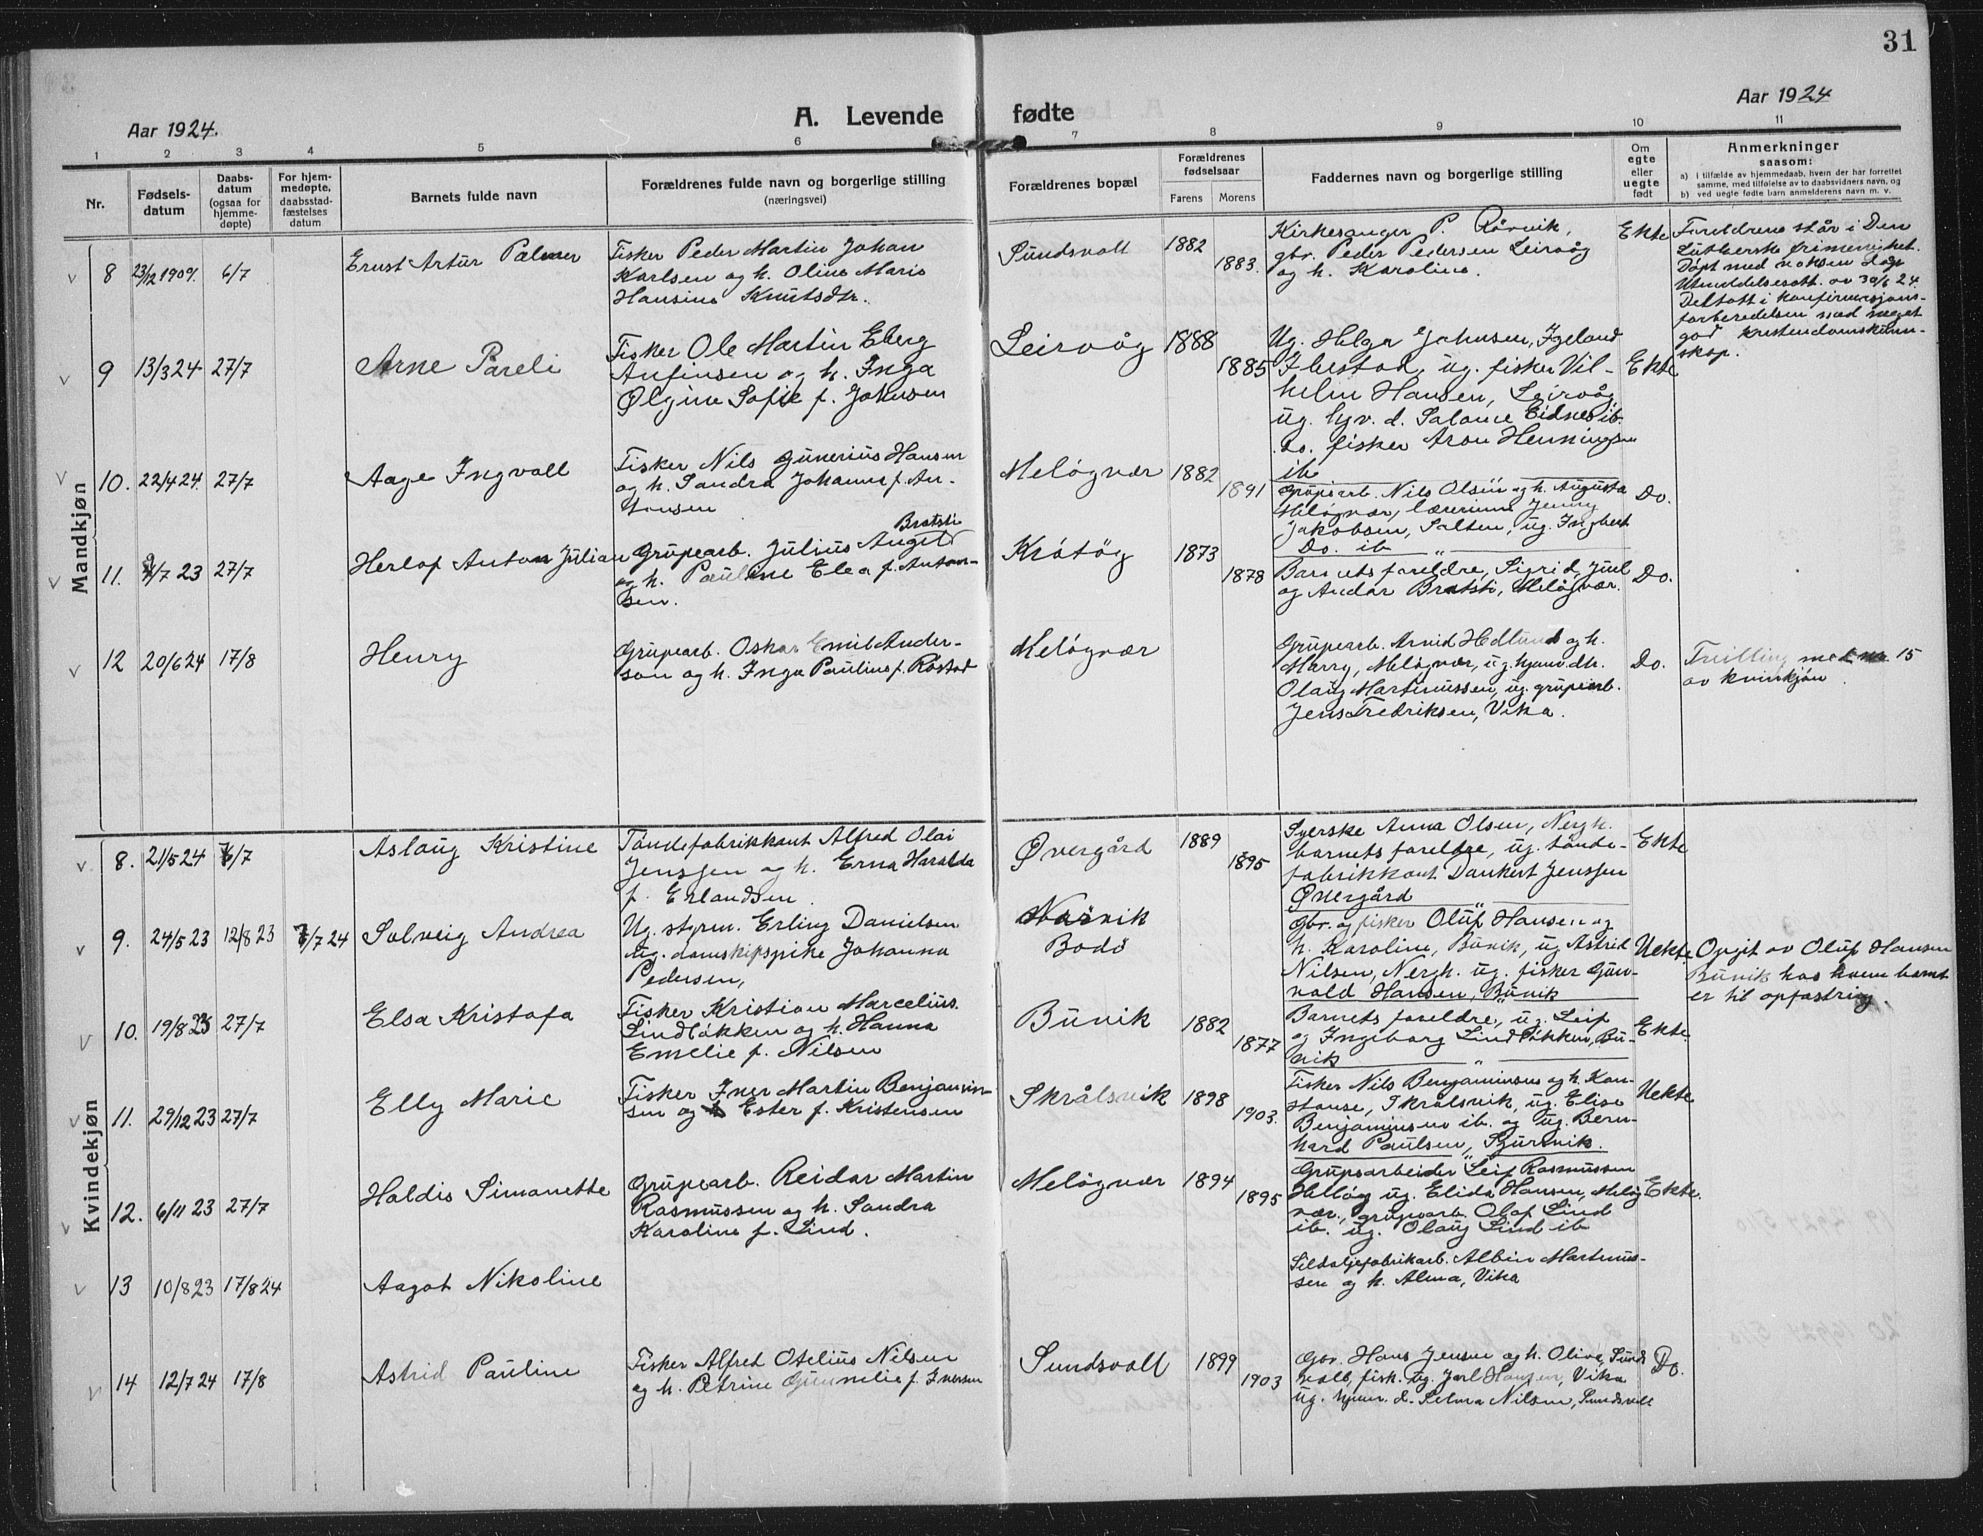 31
Aar 1924.
A. Levende fødte
Aar 1924
1 2 3 4 5 6 7 8 9 10 11
Nr.
Fødsels-
datum
Daabs-
datum
(ogsaa for
hjemme-
døpte)
For hjem-
medøpte,
daabsstad-
fæstelses
datum
Barnets fulde navn
Forældrenes fulde navn og borgerlige stilling
(næringsvei)
Forældrenes bopæl
Forældrenes
fødselsaar
Farens Morens
Faddernes navn og borgerlige stilling
Om
egte
eller
uegte
født
Anmerkninger
saasom:
a) i tilfælde av hjemmedaab, hvem der har forrettet
samme, med tilføielse av to daabsvidners navn, og
b) ved uegte fødte barn anmelderens navn m. v.
Mandkjøn
v 8 23/12 1909. 6/7
Ernst Artur Palmer
Fisker Peder Martin Johan
Karlsen og h. Oline Marie
Hansine Knutsdtr.
Sundsvoll
1882
1883.
Kirkesanger P. Rørvik,
gbr. Peder Pedersen Leirvåg
og h. Karoline.
Ekte
Foreldrene står i Den
Lutherske frimenighet.
Døpt med voksen dåp
Utmeldelsesatt. av 30/6 24.
Deltatt i konfirmasjons-
forberedelsen med meget
god kristendomskunn-
skap.
v 9 13/3 24 27/7
Arne Pareli
Fisker Ole Martin Eberg
Anfinsen og h. Inga
Olgine Sofie f. Johnsen
Leirvåg
1888
1885
Ug. Helga Johnsen, Igeland
Ibestad, ug. fisker Vil-
helm Hansen, Leirvåg,
ug. hjv. d. Salome Eidnes ib.
Do. fisker Aron Henningsen
ib
Ekte
v 10. 22/4 24. 27/7
Aage Ingvall
Fisker Nils Gunerius Hansen
og h. Sandra Johanne f. An-
tonsen
Meløgvær
1882
1891
Grupearb. Nils Olsen og h. Augusta
Meløgvær, lærerinne Jenny
Jakobsen, Salten, ug. Ingbert
Do. ib
Do.
v 11. 9/7 23 27/7
Herlof Anton Julian
Bratsti
Grupearb. Julius Angel
og h. Pauline Elea f. Anton-
sen.
Kråtøg
1873
1878
Barnets foreldre, Sigrid, Juul
og Andor Bratsti, Meløgvær.
Do.
v 12 20/6 24 17/8
Henry
Grupearb. Oskar Emil Ander-
son og h. Inga Pauline f. Røstad
Meløgvær
Grupearb. Arvid Hedlund og h.
Marry, Meløgvær, ug. hjemv. dtr.
Olaug Martinussen, ug. grupearb.
Jens Fredriksen, Vika.
Do.
Tvilling med nr 15
av kvinkjøn
Kvindekjøn
v 8. 21/5 24 6/7
Aslaug Kristine
Tøndefabrikkant Alfred Olai
Jenssen og h. Erna Haralda
f. Erlandsen
Øvergård
1889
1895
Syerske Anna Olsen, Nergh.
barnets foreldre, ug. tønde-
fabrikkant Dankert Jenssen
Øvergård
Ekte
v 9. 24/5 23 12/8 23 6/7 24
Solveig Andrea
Ug. styrm. Erling Danielsen
ug. damskipspike Johanna
Pedersen,
Bodø
Gbr. og fisker Oluf Hansen og
h. Karoline, Buvik, ug Astrid
Nilsen, Nergh. ug. fisker Gun-
vald Hansen, Buvik
Uekte
Opgit av Oluf Hansen
Buvik hos hvem barnet
er til opfostring.
v 10. 19/8 23 27/7
Elsa Kristofa
Fisker Kristian Marcelius
Lindløkken og h. Hanna
Emelie f. Nilsen
Buvik
1882
1877
Barnets foreldre, ug. Leif
og Ingeborg Lindløkken, Bu-
vik
Ekte
v 11. 29/12 23 27/7
Elly Marie
Fisker Iver Martin Benjamin-
sen og Ester f. Kristensen
Skrålsvik
1898
1903.
Fisker Nils Benjaminsen og h. Kon-
stanse, Skrålsvik, ug. Elise
Benjaminsen ib. og ug. Bern-
hard Paulsen,
Uekte
v 12. 6/11 23 27/7
Haldis Simonette
Grupearb. Reidar Martin
Rasmussen og h. Sandra
Karoline f. Lind.
Meløgvær
1894
1895
Grupearbeider Leif Rasmussen
Meløy, ug. Elida Hansen, Meløg
vær, grupearb. Olaf Lind
ib. ug. Olaug Lind ib
Ekte.
v 13 10/8 23 17/8 24
Aagot Nikoline
Sildoljefabrikarb. Albin Martinus-
sen og h. Alma, Vika
v 14 12/7 24 17/8
Astrid Pauline
Fisker Alfred Otelius Nilsen
og h. Petrine Gunnelie f. Iversen
Sundsvoll
1899
1903
Gbr. Hans Jensen og h. Oliva, Sunds
voll, fisk. ug. Jarl Hansen, Vika
ug. hjemv. d. Selma Nilsen, Sundsvoll
Do.